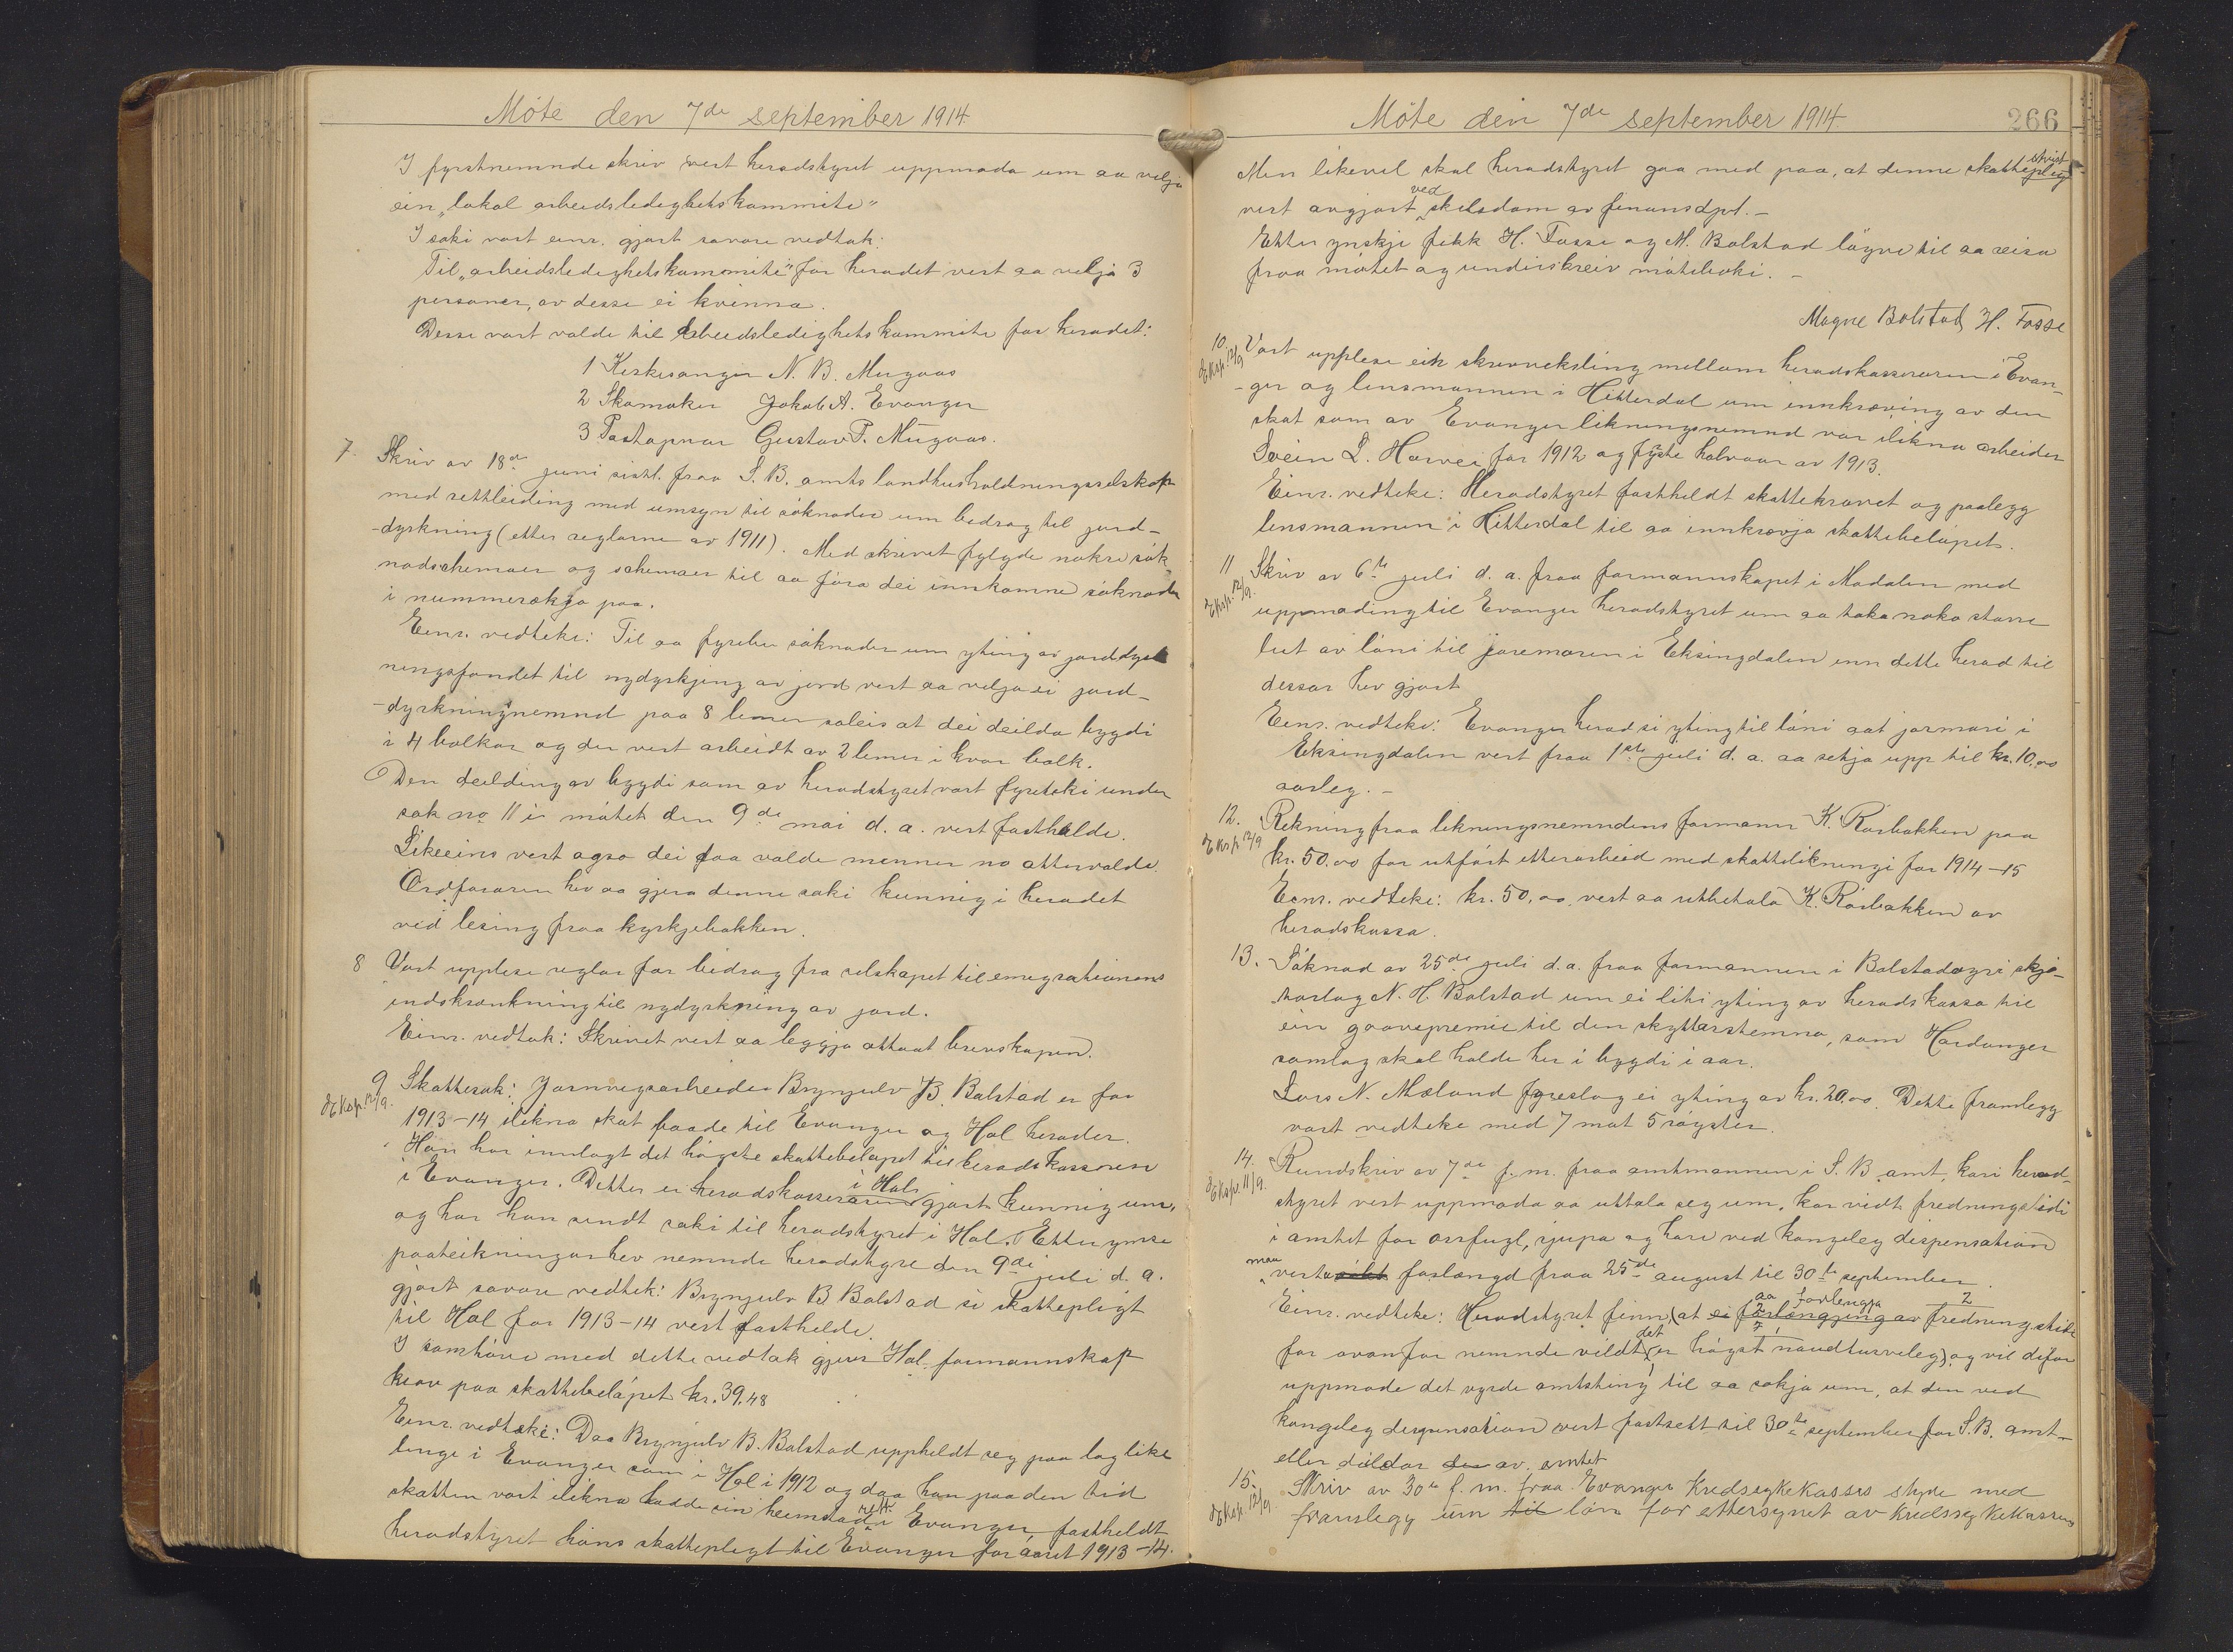 Möte den 7de september 1914
I fyrstnemnde skriv vert heradstyret uppmoda um aa velja
ein „lokal arbeidsledighetskommite"
I saki vart einr. gjort savore vedtak:
Til „arbeidsledighetskommite" for heradet vert aa velja 3
personer, av desse ei kvinna.
Desse vart valde til arbeidsledighetskommite for heradet:
1 Kirkesanger N. B. Mugaas
2 Skomaker Jakob A. Evanger
3 Postopnar Gustav T. Mugaas.
7. Skriv av 18de juni sistl. fraa S. B. amts landhusholdningsselskap
med rettleiding med umsyn til søknader um bedrag til jord-
-dyrkning (etter reglarne av 1911). Med skrivet fylgde nokre søk-
nadschemaer og schemaer til aa føra dei innkomne søknader
i nummerøkkja paa.
Einr. vedteke: Til aa fyrebu søknader um yting av jorddyrk
ningsfondet til nydyrkjing av jord vert aa velja ei jord-
-dyrkningnemnd paa 8 lemer soleis at dei deilda bygdi
i 4 bolkar og der vert arbeidt av 2 lemer i kvar bolk.
Den deilding av bygdi som av heradstyret vart fyreteki under
sak no 11 i møtet den 9de mai d. a. vert fasthalde.
Likeeins vert ogso dei daa valde menner no attervalde.
Ordføraren hev aa gjera denne saki kunnig i heradet
ved lesing fraa kyrkjebakken.
8 Vart upplese reglar for bidrag fra selskapet til emigrationens
indskrænkning til nydyrkning av jord.
Einr. vedtak: Skrivet vert aa leggja attaat brevskapen.
9. Skattesak: Jarnvegsarbeider Brynjulv B. Bolstad er for
Eksp. 12/9.
1913-14 ilikna skat baade til Evanger og Hol herader.
Han har innlagt det høgste skattebeløpet til heradskasseren
i Evanger. Dette er heradskasseraren i Hol gjort kunnig um,
og har han sendt saki til heradstyret i Hol. Etter ymse
paateikningar hev nemnde heradstyre den 9de juli d. a.
gjort savore vedtek: Brynjulv B Bolstad si skattepligt
til Hol for 1913-14 vert fasthelde.
I samhøve med dette vedtak gjever Hol formannskap
krav paa skattebeløpet kr. 39.48
Einr. vedteke: Daa Brynjulv B. Bolstad uppheldt seg paa lag like
lenge i Evanger som i Hol i 1912 og daa han paa den tid
skatten vart ilikna hadde sin heimstadrett i Evanger fastheldt
heradstyret hans skatteplegt til Evanger for aaret 1913-14.
Möte den 7de september 1914
266
Men likevel skal heradstyret gaa med paa, at denne skattetvist
vert avgjort ved skilsdom av finansdpt.-
Etter ynskje fikk H. Fosse og M. Bolstad løyve til aa reisa
fraa møtet og underskreiv møteboki.-
Magne Bolstad H. Fosse
10. Vart upplese ein skrivveksling mellom heradskasseraren i Evan-
Eksp. 12/9
-ger og lensmannen i Hitterdal um innkræving av den
skat som av Evanger likningsnemnd var ilikna arbeider
Svein L. Harvei for 1912 og fyste halvaar av 1913.
Einr. vedteke: Heradstyret fastheldt skattekravet og paalegg
lensmannen i Hitterdal til aa innkrævja skattebeløpet.
11 Skriv av 6te juli d. a. fraa formannskapet i Modalen med
Eksp. 12/9.
uppmoding til Evanger heradstyret um aa taka noko større
lut av løni til jormoren i Eksingdalen enn dette herad til
dessar hev gjort
Einr. vedteke: Evanger herad si yting til løni aat jormori i
Eksingdalen vert fraa 1ste juli d. a. aa setja upp til kr. 10,00
aarleg.-
12. Rekning fraa likningsnemndens formann K. Rørbakken paa
Eksp. 12/9
kr. 50.00 for utført etterarbeid med skattelikningi for 1914-15
Einr. vedteke: kr. 50,00 vert aa utbetala K. Rørbakken av
heradskassa.
13. Søknad av 25de juli d. a. fraa formannen i Bolstadøyri skjo-
tarlag N. H. Bolstad um ei liti yting av heradskassa til
ein gaavepremie til den skyttarstemna, som Hardanger
samlag skal halde her i bygdi i aar.
Lars N. Mæland fyreslog ei yting av kr. 20.00. Dette framlegg
vart vedteke med 7 mot 5 røyster.
14. Rundskriv av 7de f. m. fraa amtmannen i S. B. amt, kori herad-
Eksp. 11/9.
styret vert uppmoda aa uttala seg um, kor vidt fredningstidi
i amtet for orrfugl, rjupa og hare ved kongeleg dispensation
maa verta forlængd fraa 25de august til 30te september.
Einr. vedteke: Heradstyret finn, at ei forlængjing av aa forlengja fredningstidi
for ovanfor nemnde vildt det er høgst naudturveleg, og vil difor
uppmode det vyrde amtsting til aa søkja um, at den ved
kongeleg dispensation vert fastsett til 30te september for S. B. amt-
eller døldar av amtet
15. Skriv av 30te f. m. fraa Evanger Kredssykekasses styre med
Eksp. 12/9.
framlegg um til løn for ettersynet av kredssykekassens